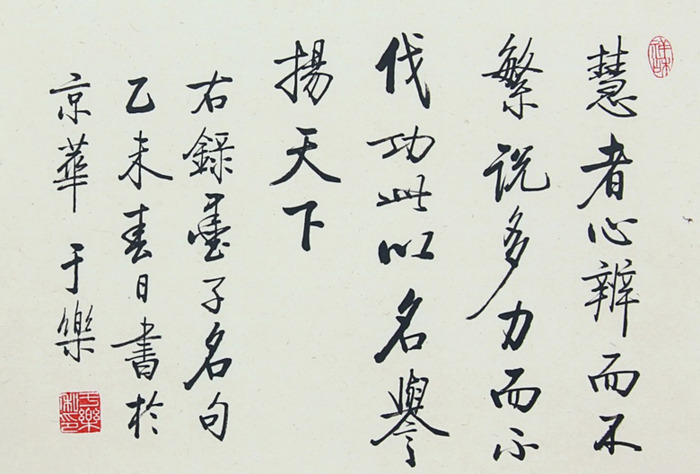 慧者心辨而不
繁说多力而不
伐功此以名譽
揚天下
右錄墨子名句
乙未春日書於
京華 于樂